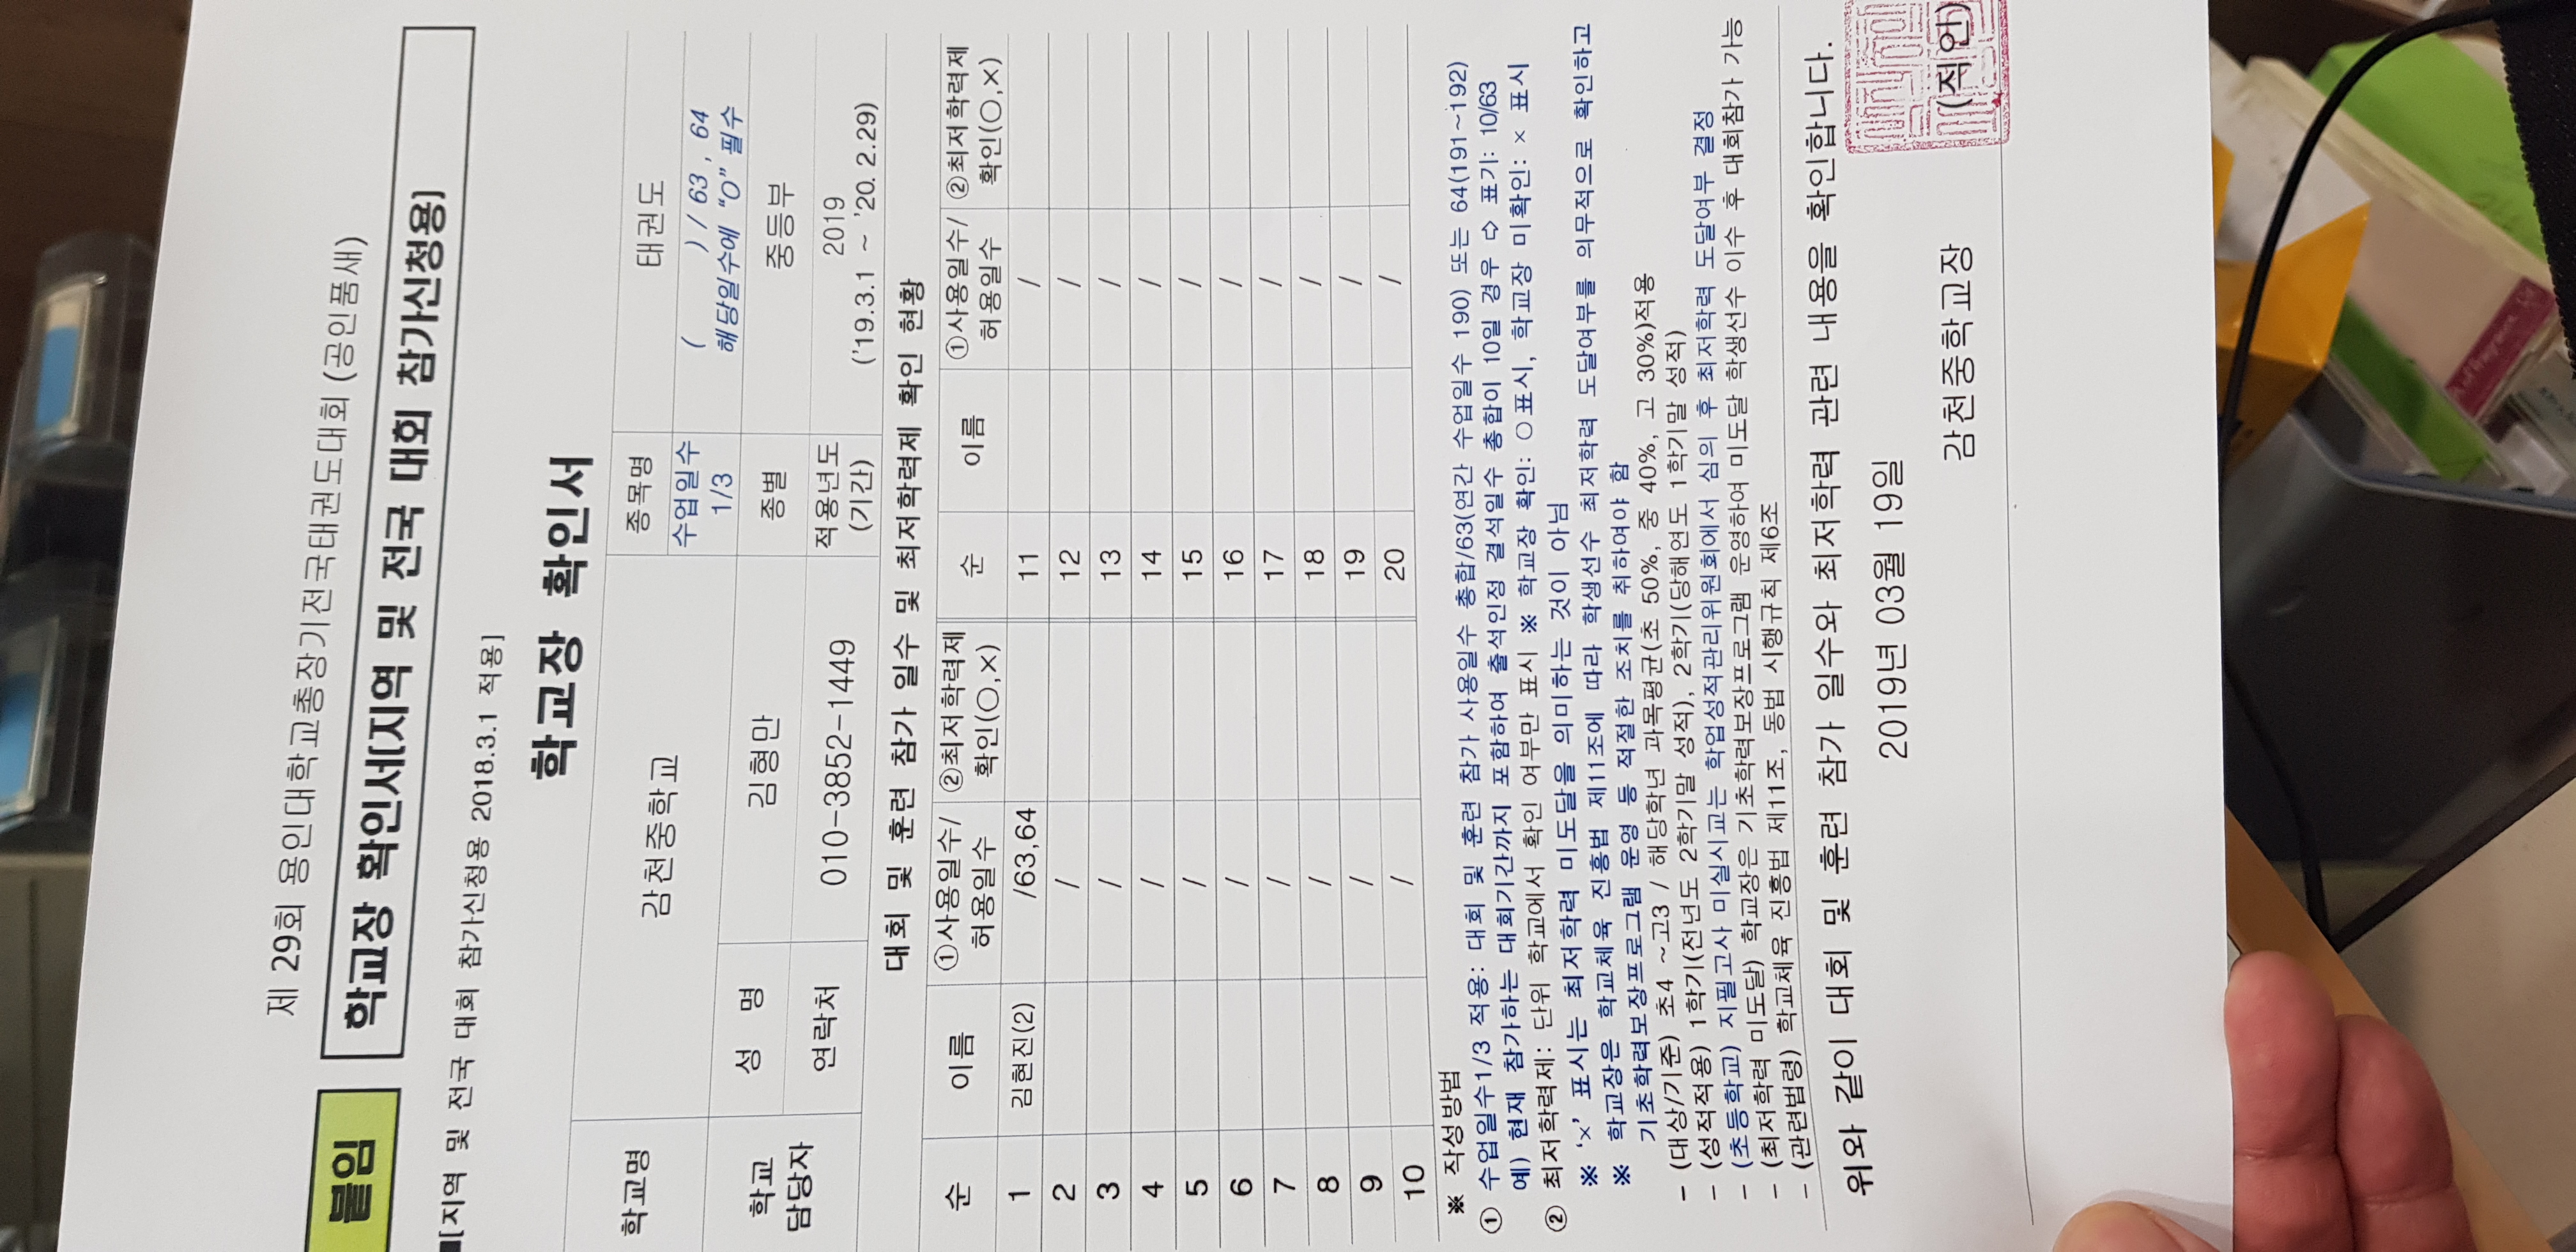 제 29회 용인대학교총장기전국태권도대회 (공인품새)
붙임 학교장 확인서[지역 및 전국 대회 참가신청용]
■[지역 및 전국 대회 참가신청용 2018.3.1 적용]
학교장 확인서
학교명 감천중학교 종목명 태권도
수업일수 1/3 ( ) / 63 , 64
해당일수에 "O" 필수
학교 담당자 성 명 김형만 종별 중등부
연락처 010-3852-1449 적용년도 (기간) 2019
('19.3.1 ~ '20.2.29)
대회 및 훈련 참가 일수 및 최저학력제 확인 현황
순 이름 ①사용일수/허용일수 ②최저학력제 확인(○,×) 순 이름 ①사용일수/허용일수 ②최저학력제 확인(○,×)
1 김현진(2) /63,64 11 /
2 / 12 /
3 / 13 /
4 / 14 /
5 / 15 /
6 / 16 /
7 / 17 /
8 / 18 /
9 / 19 /
10 / 20 /
※ 작성방법
① 수업일수1/3 적용: 대회 및 훈련 참가 사용일수 총합/63(연간 수업일수 190) 또는 64(191~192)
예) 현재 참가하는 대회기간까지 포함하여 출석인정 결석일수 총합이 10일 경우 ⇨ 표기: 10/63
② 최저학력제: 단위 학교에서 확인 여부만 표시 ※ 학교장 확인: ○ 표시, 학교장 미확인: × 표시
※ '×' 표시는 최저학력 미도달을 의미하는 것이 아님
※ 학교장은 학교체육 진흥법 제11조에 따라 학생선수 최저학력 도달여부를 의무적으로 확인하고
기초학력보장프로그램 운영 등 적절한 조치를 취하여야 함
- (대상/기준) 초4 ~고3 / 해당학년 과목평균(초 50%, 중 40%, 고 30%)적용
- (성적적용) 1학기(전년도 2학기말 성적), 2학기(당해연도 1학기말 성적)
- (초등학교) 지필고사 미실시교는 학업성적관리위원회에서 심의 후 최저학력 도달여부 결정
- (최저학력 미도달) 학교장은 기초학력보장프로그램 운영하여 미도달 학생선수 이수 후 대회참가 가능
- (관련법령) 학교체육 진흥법 제11조, 동법 시행규칙 제6조
위와 같이 대회 및 훈련 참가 일수와 최저학력 관련 내용을 확인합니다.
2019년 03월 19일
감천중학교장 (직인)